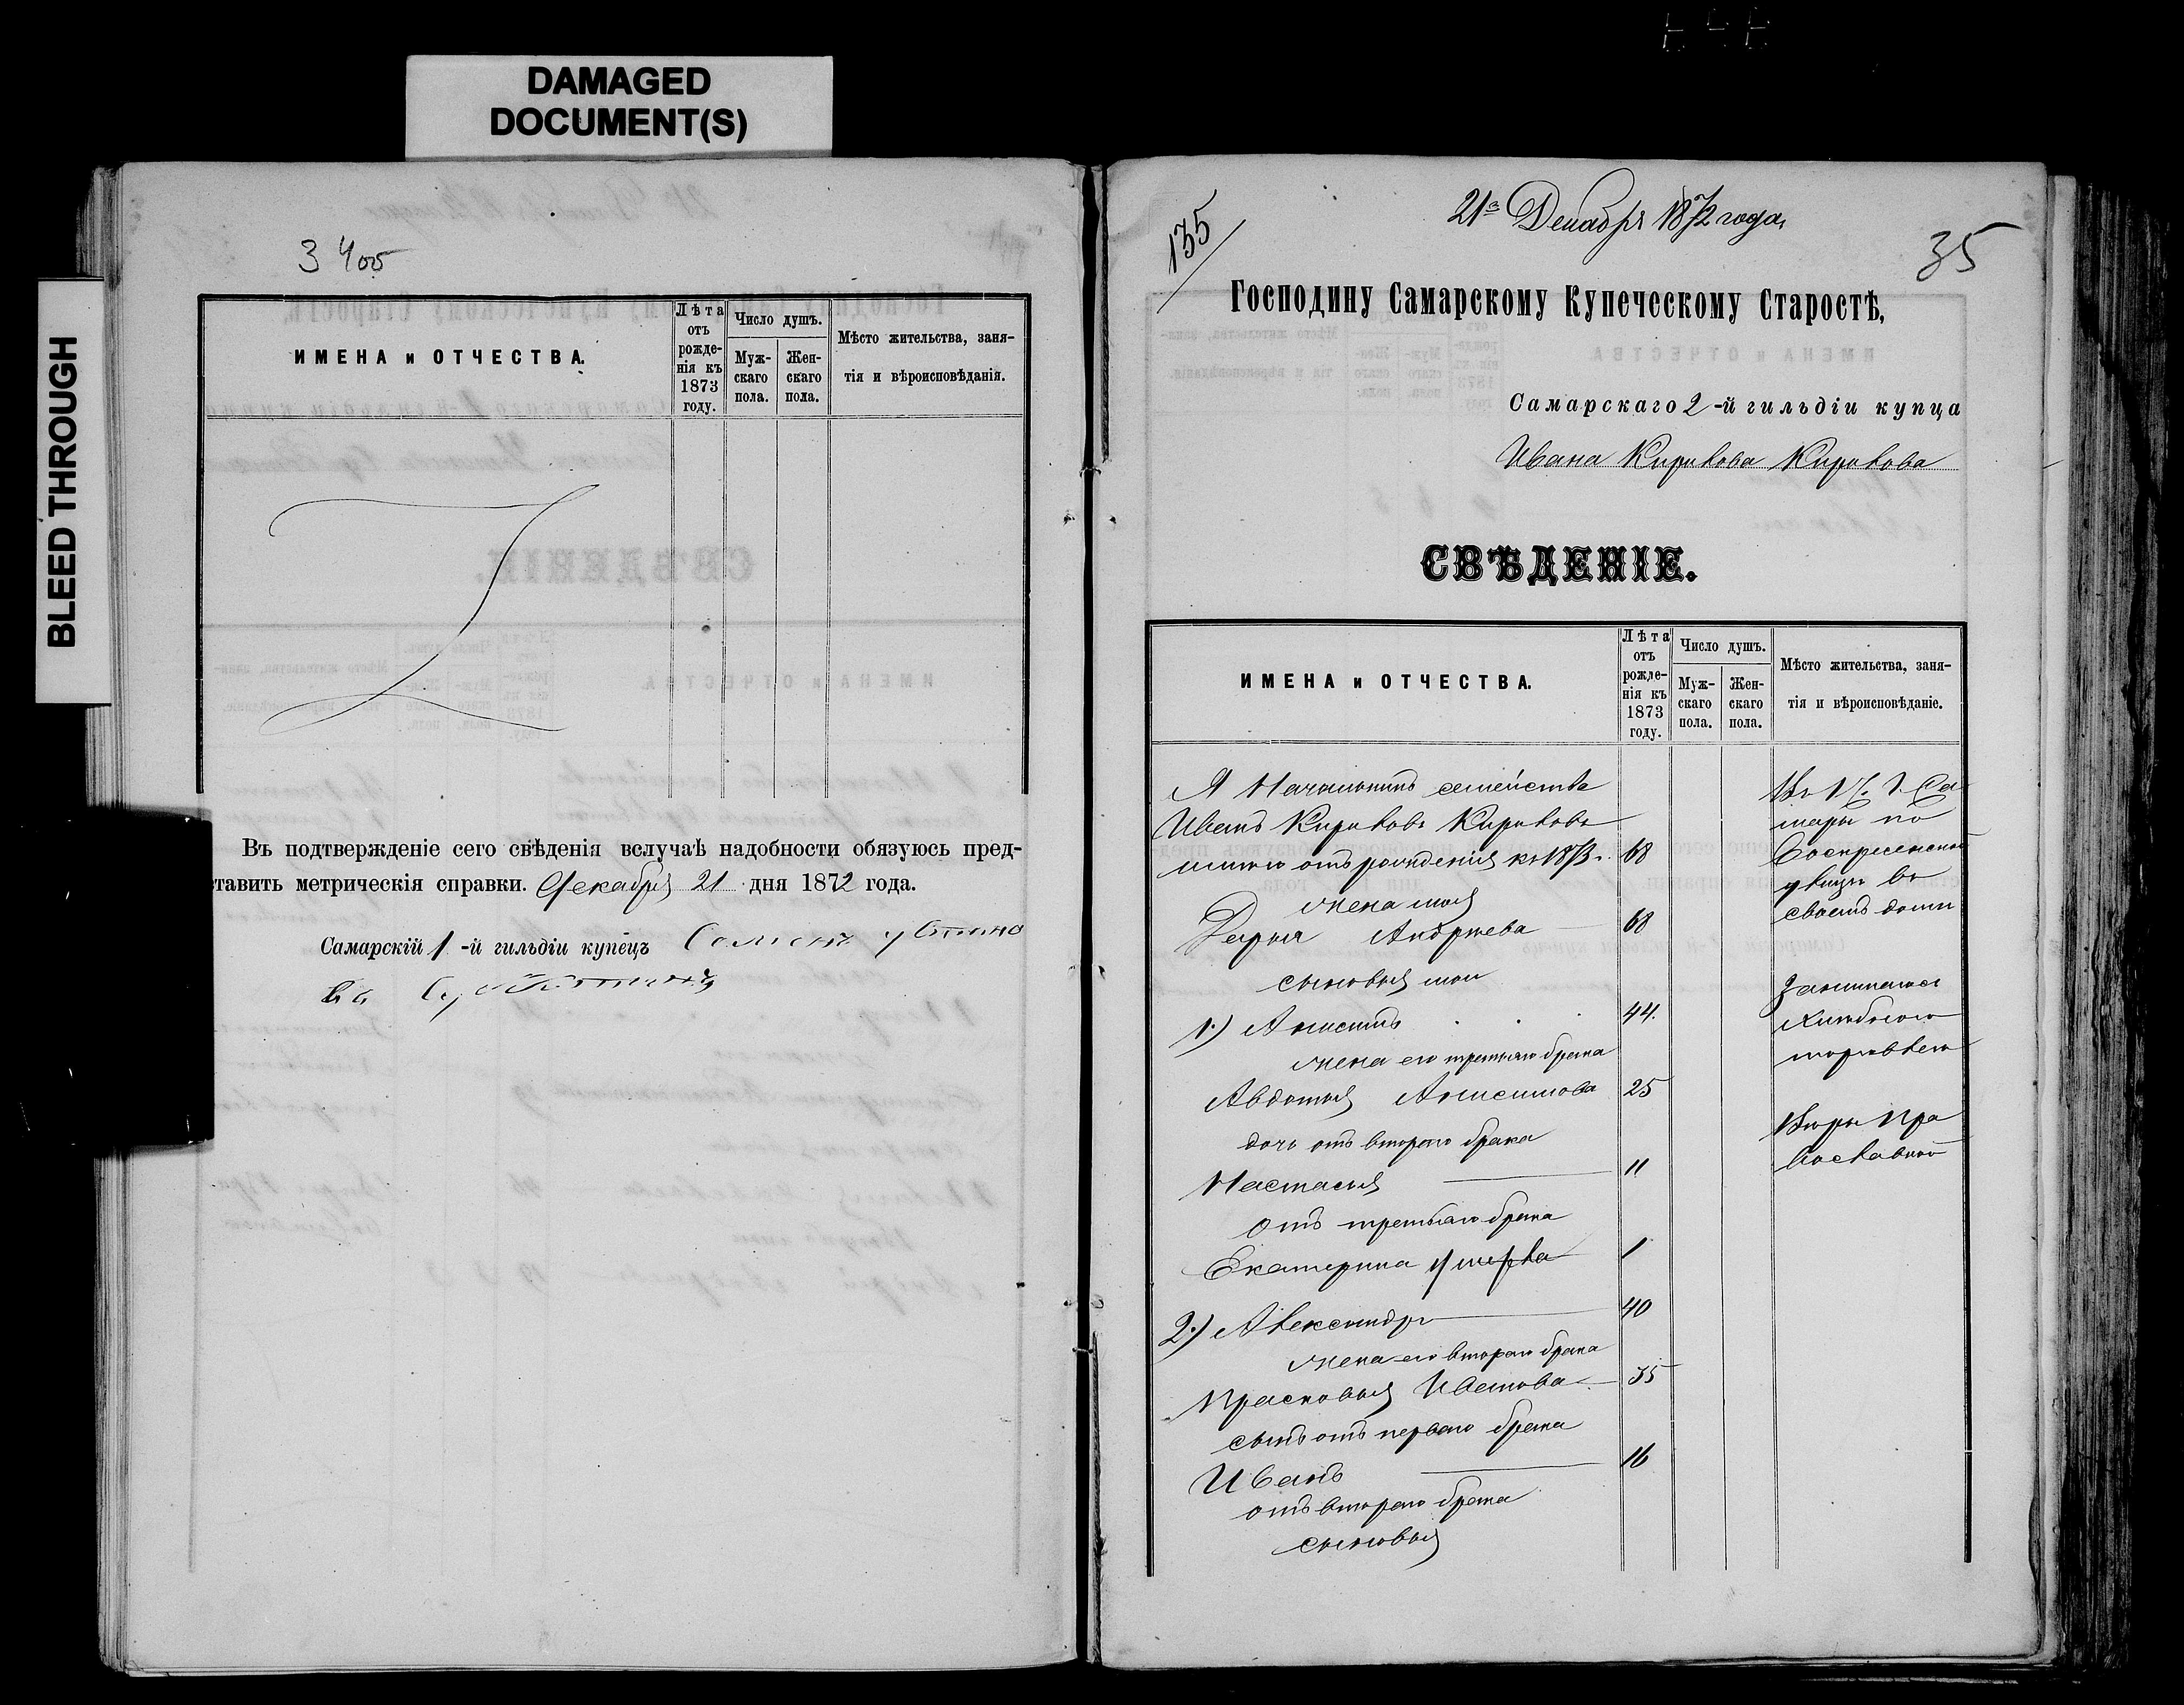 DAMAGED
DOCUMENT(S)
BLEED THROUGH
3400
ИМЕНА и ОТЧЕСТВА.
Лѣта
отъ
рожде-
нія къ
1873
году.
Число душъ.
Муж-
скаго
пола.
Жен-
скаго
пола.
Мѣсто жительства, заня-
тія и вѣроисповѣданія.
Въ подтвержденіе сего свѣденія вслучаѣ надобности обязуюсь пред-
тавить метрическія справки. Декабря 21 дня 1872 года.
Самарскій 1-й гильдіи купецъ Семенъ
135
21го Декабря 1872 года,
35
Господину Самарскому Купеческому Старостѣ,
Самарскаго 2-й гильдіи купца
Ивана Кирилова Кирилова
СВѢДЕНІЕ.
ИМЕНА и ОТЧЕСТВА.
Лѣта
отъ
рожде-
нія къ
1873
году.
Число душъ.
Муж-
скаго
пола.
Жен-
скаго
пола.
Мѣсто жительства, заня-
тія и вѣроисповѣданіе.
Я Начальникъ семейства
Иванъ Кириловъ Кириловъ
отъ рожденія къ 1873 г. 68
жена моя
Дарья Андреева 68
сыновья мои
1.) Анисимъ 44.
жена его третьяго брака
Авдотья Анисимова 25
дочь отъ втораго брака
Настасья 11
отъ третьяго брака
Екатерина умерла 1
2.) Александръ 40
жена его втораго брака
Прасковья 35
сынъ отъ перваго брака
Иванъ 16
отъ втораго брака
сыновья
Въ 1 Ч. г. Са
мары по
Воскресенской
улицѣ въ
своемъ доми
Занимаюсь
хлибною
торговлею
Виры Пра
вославной